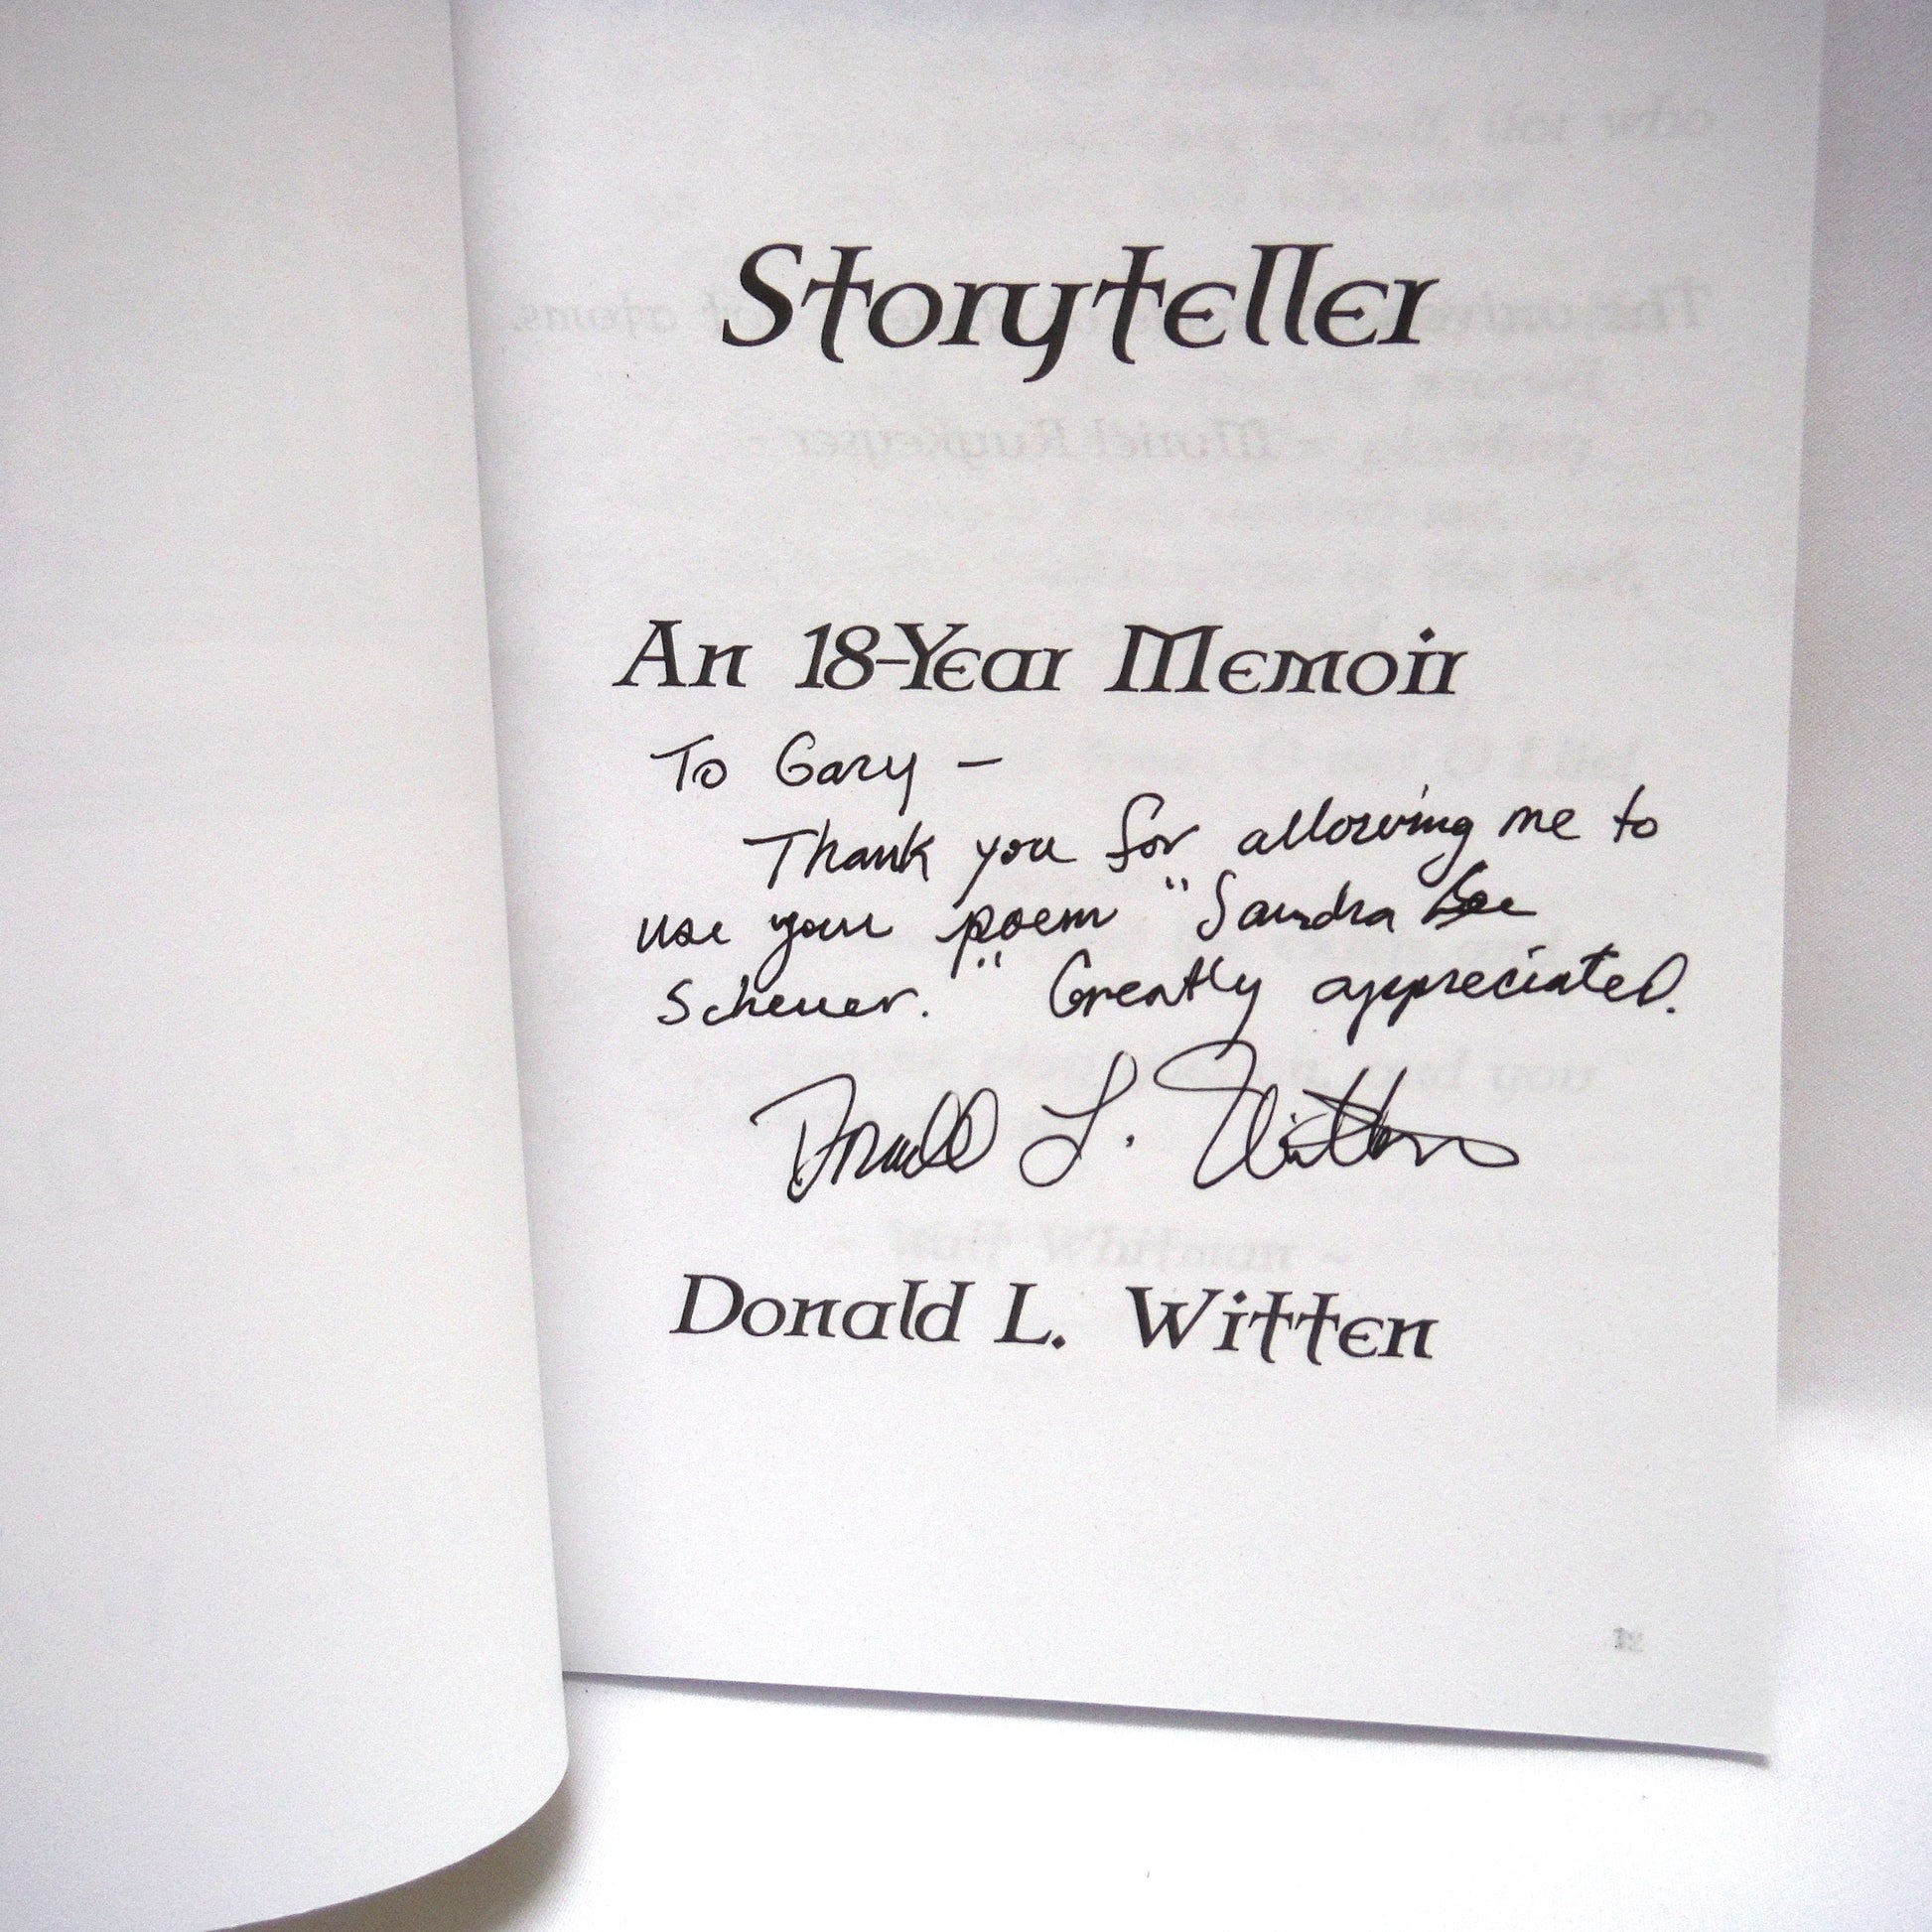 Storyteller
An 18-Year Memoir
To Gary –
Thank you for allowing me to
use your poem "Sandra Lee
Scheuer." Greatly appreciated.
Donald L. Witten
Donald L. Witten